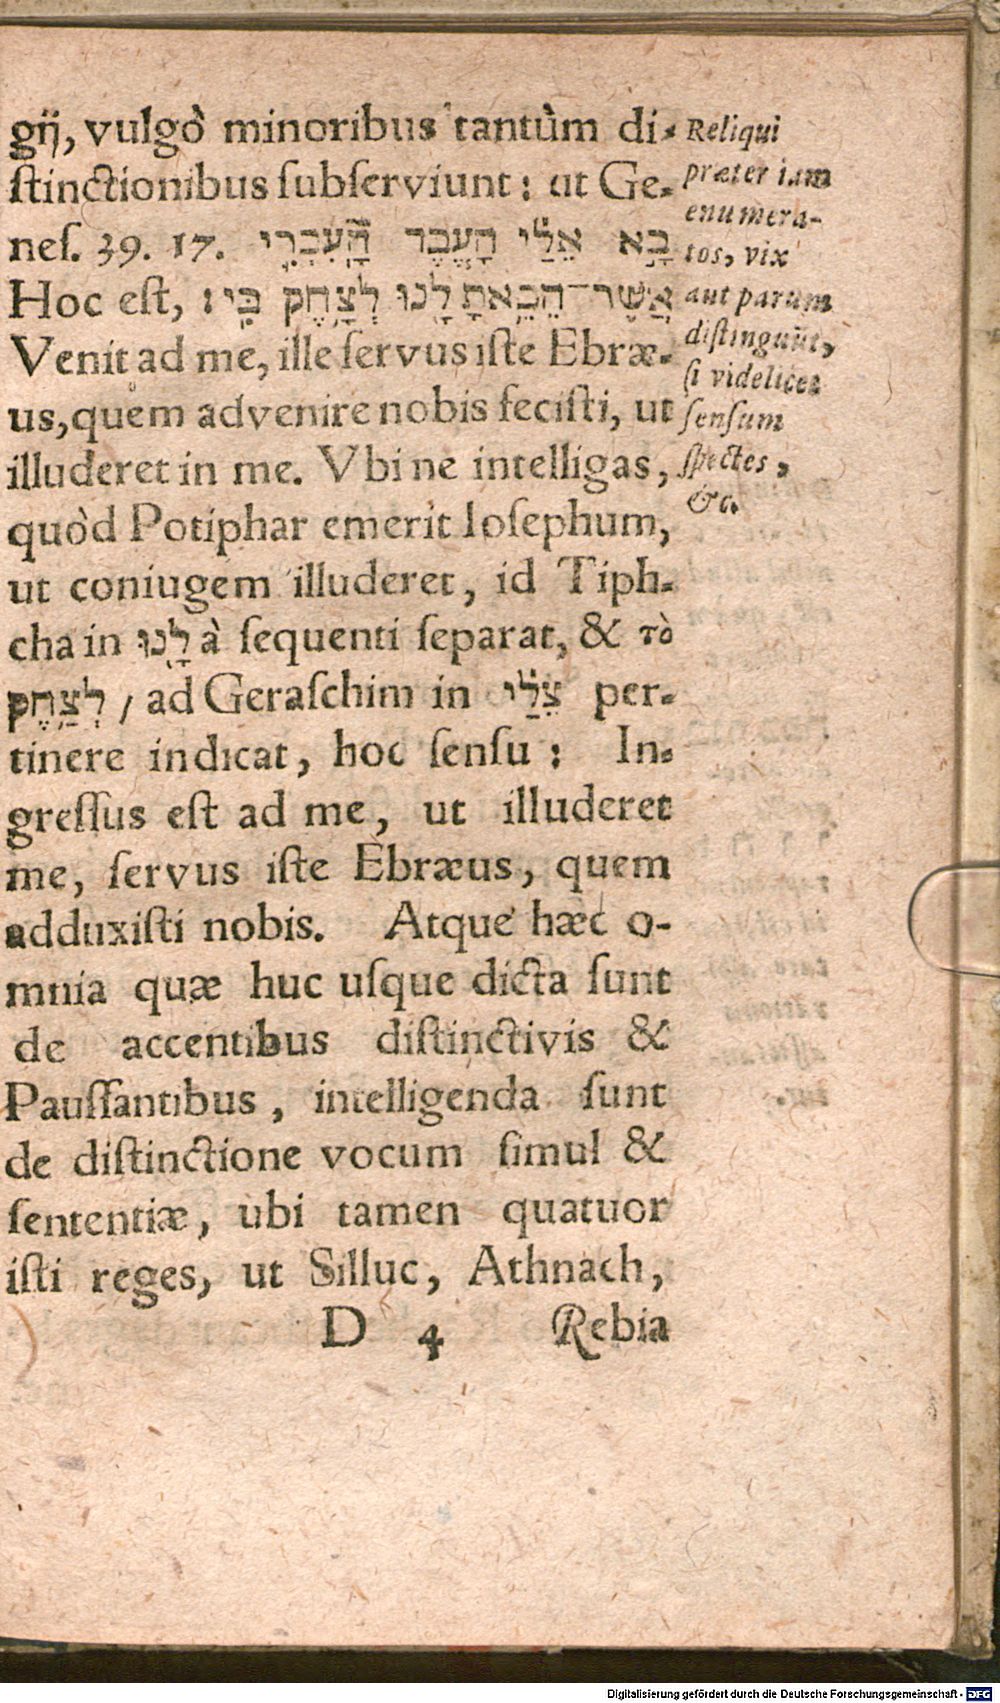 gij, vulgò minoribus tantùm di-
ſtinctionibus ſubſerviunt: ut Ge-
neſ. 39. 17. בָּא אֵלַי הָעֶבֶד הָעִבְרִי
Hoc eſt, אֲשֶׁר־הֵבֵאתָ לָּנוּ לְצַחֶק בִּי׃
Venit ad me, ille ſervus iſte Ebræ-
us, quem advenire nobis feciſti, ut
illuderet in me. Vbi ne intelligas,
quòd Potiphar emerit Ioſephum,
ut coniugem illuderet, id Tiph-
cha in לָּנוּ à ſequenti ſeparat, & τὸ
לְצַחֶק / ad Geraſchim in צֵלַי per-
tinere indicat, hoc ſenſu: In-
greſſus eſt ad me, ut illuderet
me, ſervus iſte Ebræus, quem
adduxiſti nobis. Atque hæc o-
mnia quæ huc uſque dicta ſunt
de accentibus diſtinctivis &
Pauſſantibus, intelligenda ſunt
de diſtinctione vocum ſimul &
ſententiæ, ubi tamen quatuor
iſti reges, ut Silluc, Athnach,
D 4 Rebia
Reliqui
præter iam
enumera-
tos, vix
aut parum
diſtinguūt,
ſi videlicet
ſenſum
ſpectes,
&c.
Digitalisierung gefördert durch die Deutsche Forschungsgemeinschaft - DFG